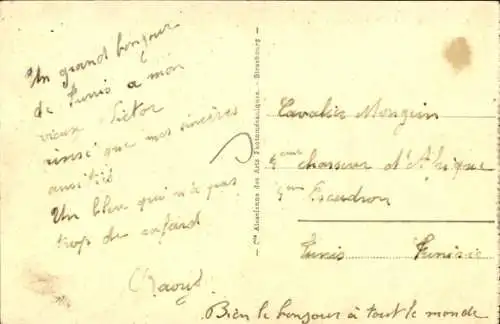 Un grand bonjour
de Tunis a mon
vieux Victor
ainsi que mes sincères
amitiés
Un bleu qui n'a pas
trop de cafard
Raoul
Cie Alsacienne des Arts Photomécaniques - Strasbourg
Cavalier Mongin
5eme chasseur d'Afrique
5eme Escadron
Tunis Tunisie
Bien le bonjour à tout le monde